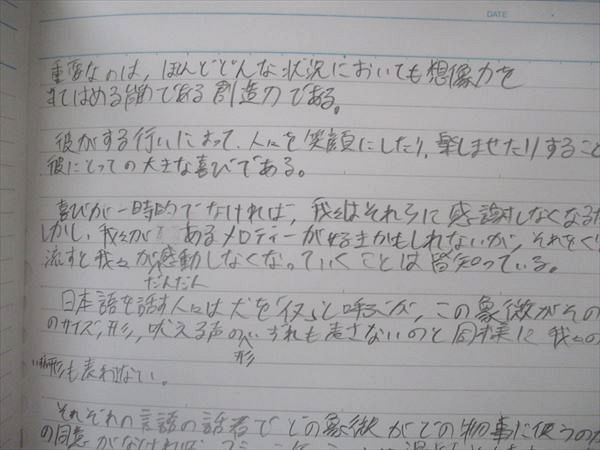 DATE
重要なのは，ほんどどんな状況においても想像力を
あてはめる能力である創造力である。
彼がする行いによって、人々を笑顔にしたり，楽しませたりすること
彼にとっての大きな喜びである。
喜びが一時的でなければ，我々はそれらに感謝しなくなるだ
しかし，我々が あるメロディーが好きかもしれないが，それをくり
流すと我々が感動しなくなっていくことは皆知っている。
だんだん
日本語を話す人々は犬を「イヌ」と呼ぶが，この象徴がその
のサイズ，形，吠える声のいずれも表さないのと同様に 我々の
形
形も表わない。
それぞれの言語の話者で どの象徴がどの物事に使うのか
の同意がなければ